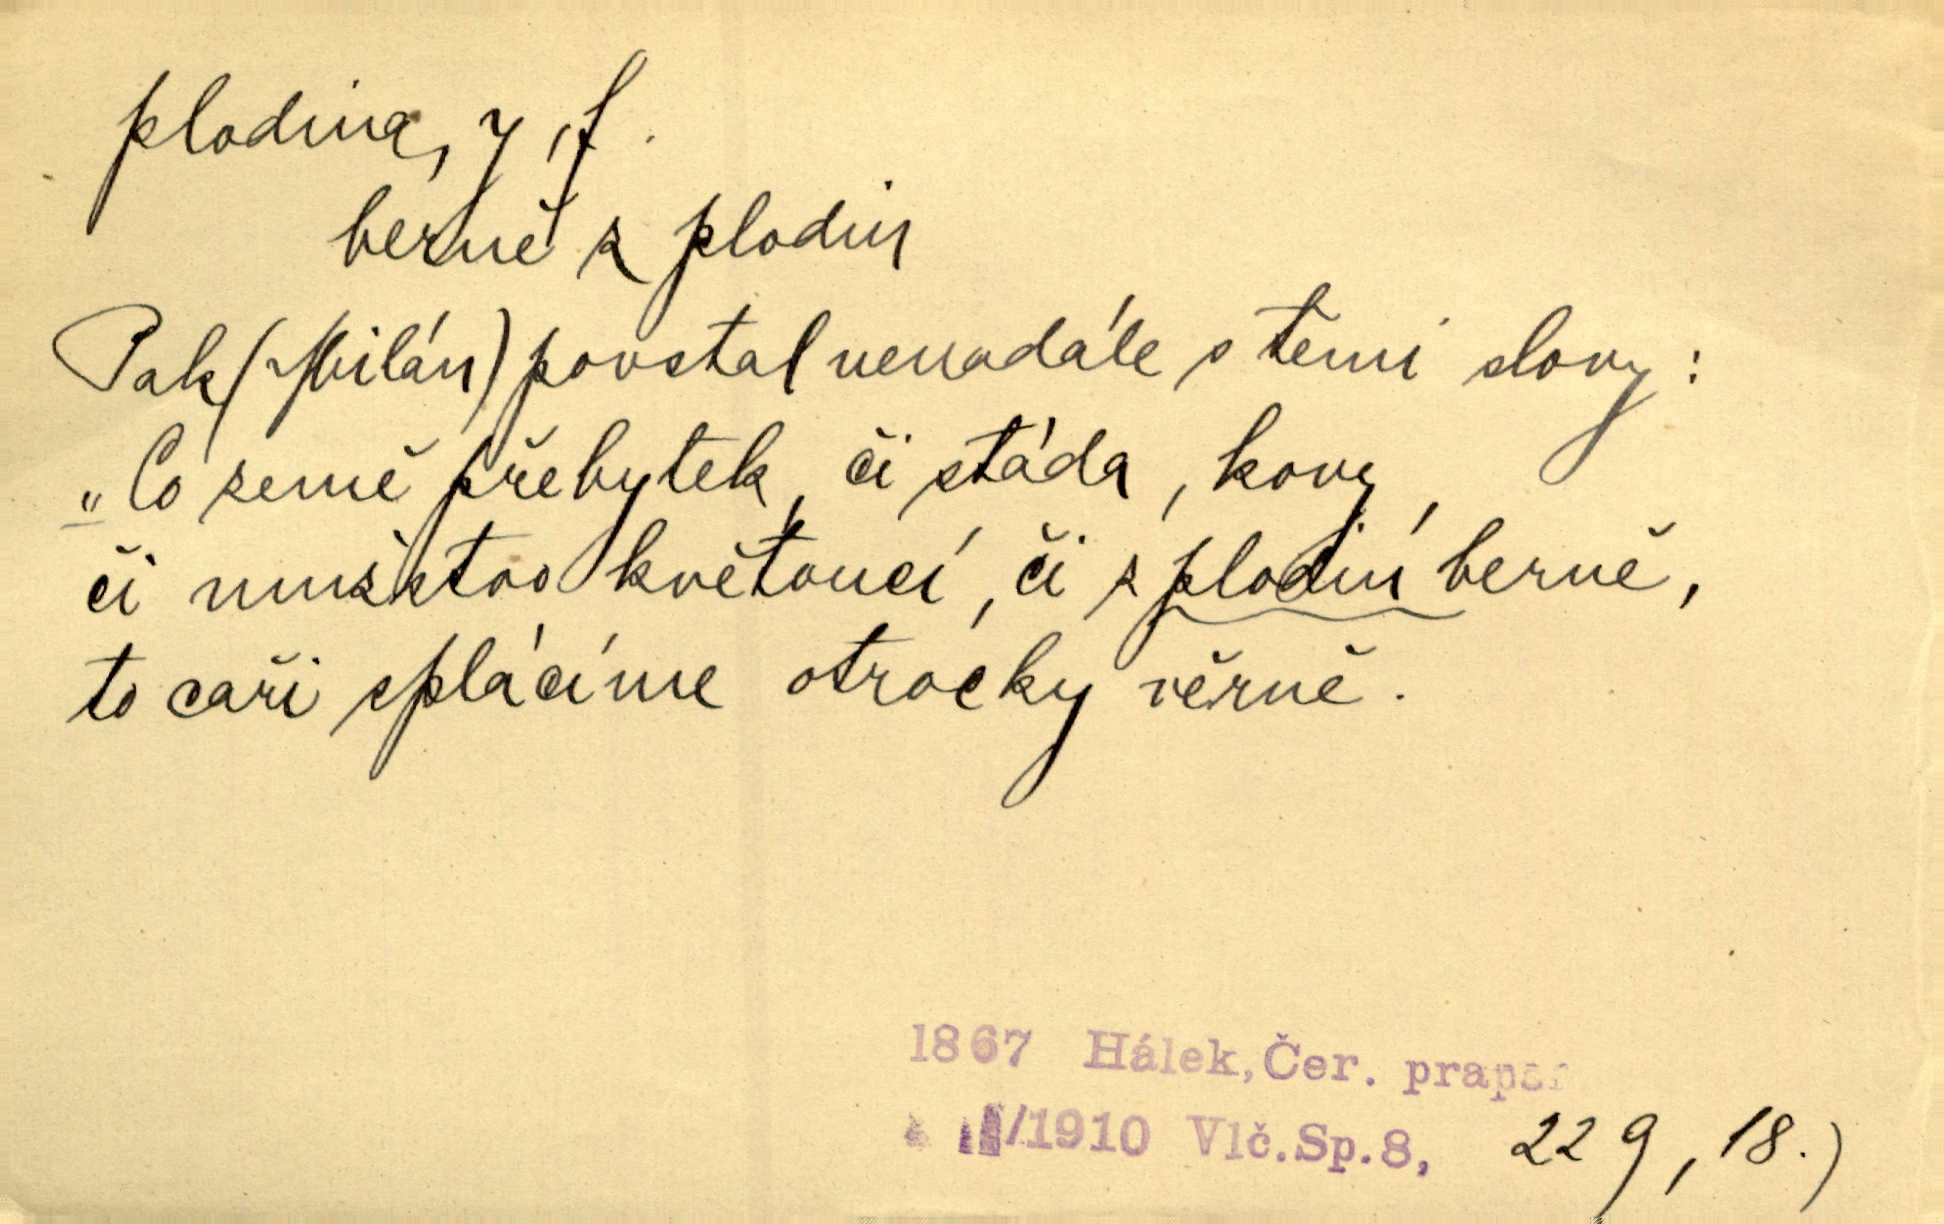 plodina, y, f.
berně z plodin
Pak (Milán) povstal nenadále s těmi slovy:
„Co země přebytek, či stáda, kovy,
či mužstvo květoucí, či z plodin berně,
to caři splácíme otrocky věrně.
1867 Hálek, Čer. prap
/1910 Vlč.Sp.8, 229, 18.)